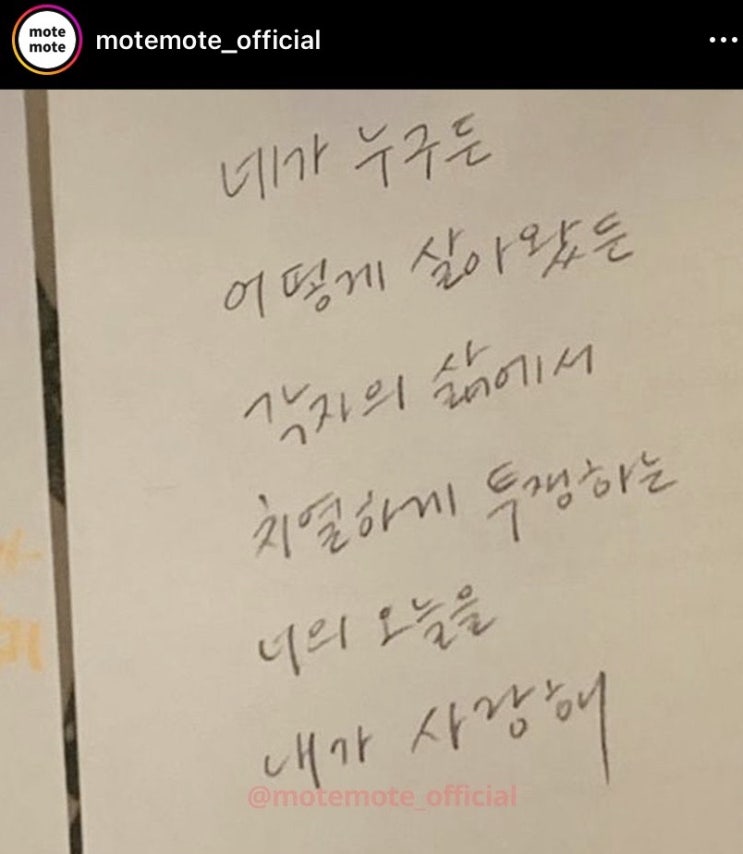 mote
mote
motemote_official
네가 누구든
어떻게 살아왔든
각자의 삶에서
치열하게 투쟁하는
너의 오늘을
내가 사랑해
@motemote_official